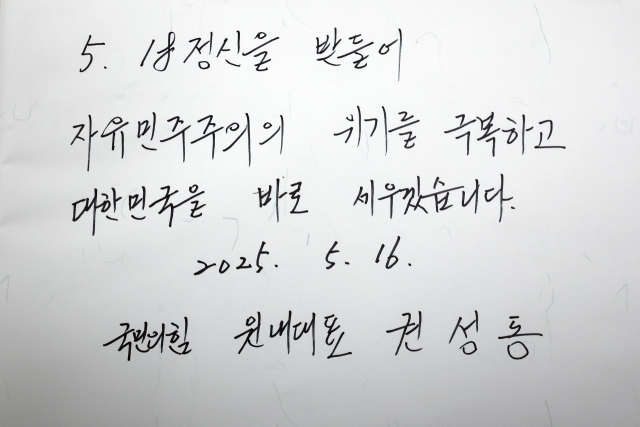 5. 18정신을 받들어
자유민주주의의 위기를 극복하고
대한민국을 바로 세우겠습니다.
2025. 5. 16.
국민의힘 원내대표 권성동